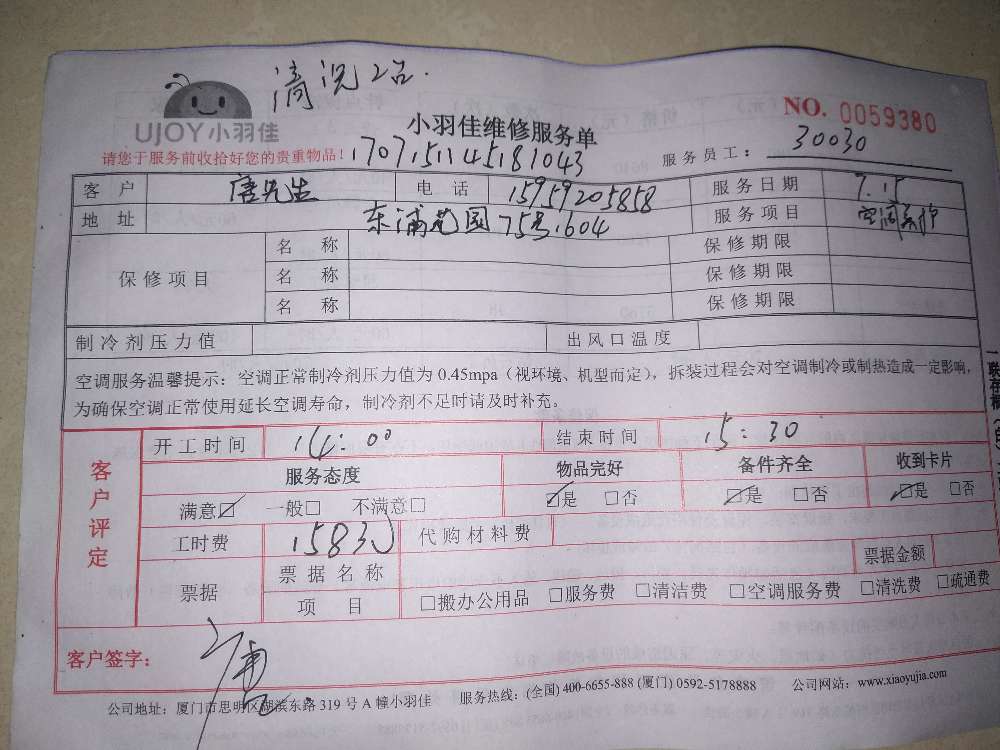 清洗2台.
UJOY小羽佳
小羽佳维修服务单
NO. 0059380
请您于服务前收拾好您的贵重物品!
1707151145181043
服务员工: 30030
客户 唐先生 电话 15959205858 服务日期 7.15
地址 东浦花园75号.604 服务项目 空调养护
保修项目
名称 保修期限
名称 保修期限
名称 保修期限
制冷剂压力值 出风口温度
空调服务温馨提示: 空调正常制冷剂压力值为 0.45mpa (视环境、机型而定), 拆装过程会对空调制冷或制热造成一定影响,
为确保空调正常使用延长空调寿命, 制冷剂不足时请及时补充。
客户评定
开工时间 14:00 结束时间 15:30
服务态度 物品完好 备件齐全 收到卡片
满意☑ 一般□ 不满意□ ☑是 □否 ☑是 □否 ☑是 □否
工时费 158元 代购材料费
票据 票据名称 票据金额
项目 □搬办公用品 □服务费 □清洁费 □空调服务费 □清洗费 □疏通费
客户签字: 唐
公司地址: 厦门市思明区湖滨东路 319 号 A 幢小羽佳 服务热线: (全国) 400-6655-888 (厦门) 0592-5178888 公司网站: www.xiaoyujia.com